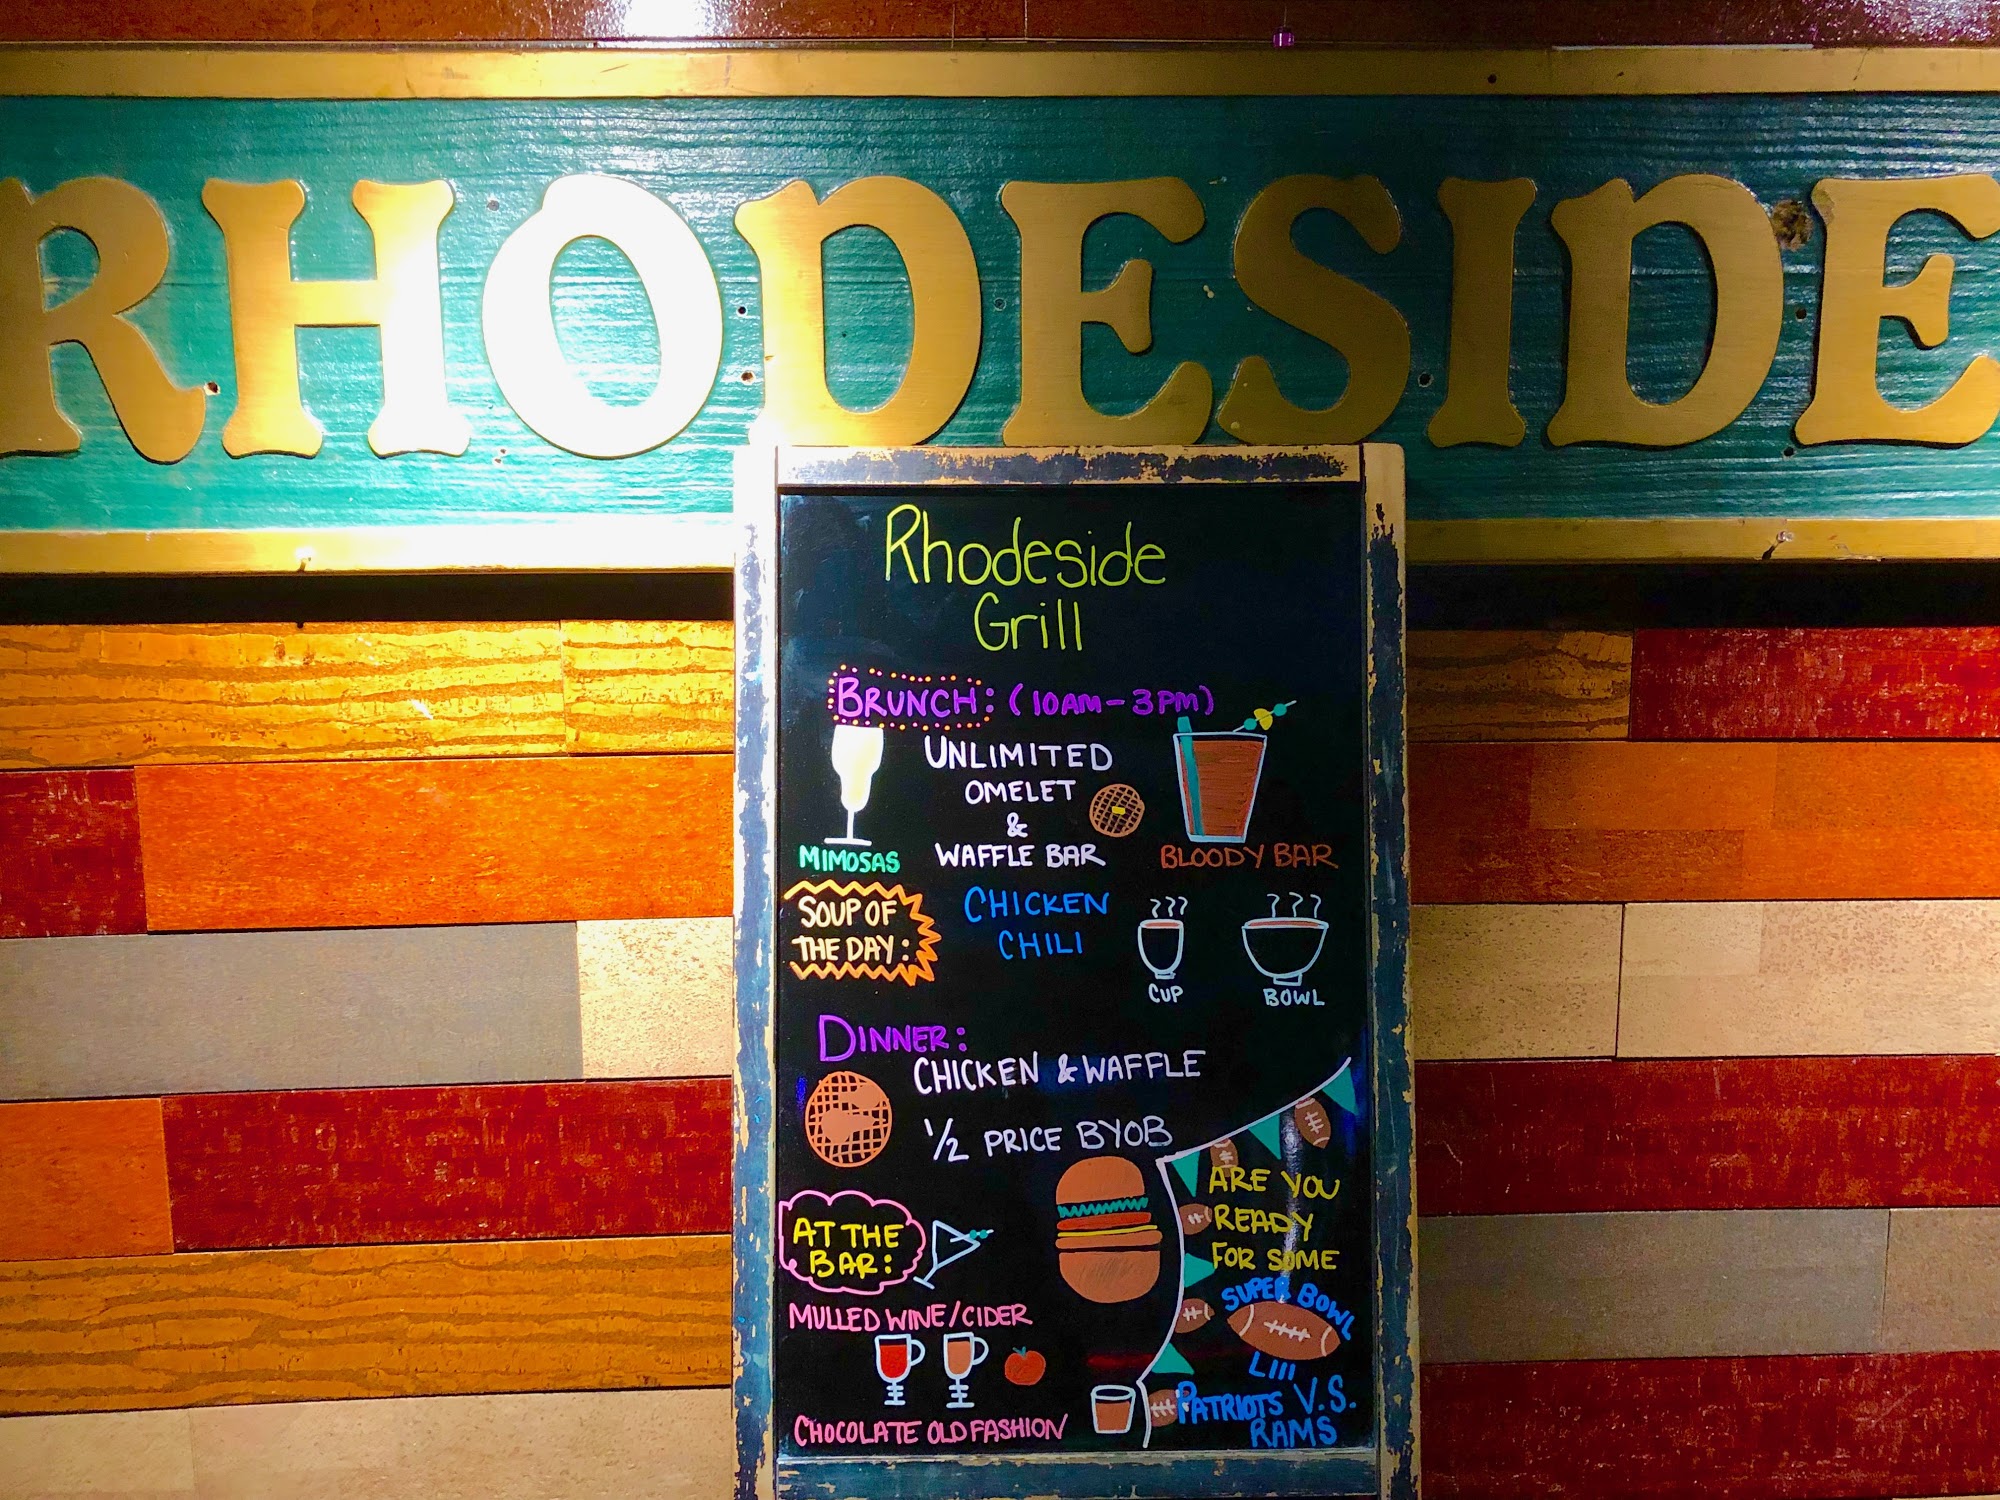 RHODESIDE
Rhodeside
Grill
BRUNCH: (10AM-3PM)
UNLIMITED
OMELET
&
WAFFLE BAR
MIMOSAS
BLOODY BAR
SOUP OF
THE DAY:
CHICKEN
CHILI
CUP
BOWL
DINNER:
CHICKEN & WAFFLE
1/2 PRICE BYOB
AT THE
BAR:
MULLED WINE/CIDER
CHOCOLATE OLD FASHION
ARE YOU
READY
FOR SOME
SUPER BOWL
LIII
PATRIOTS V.S.
RAMS